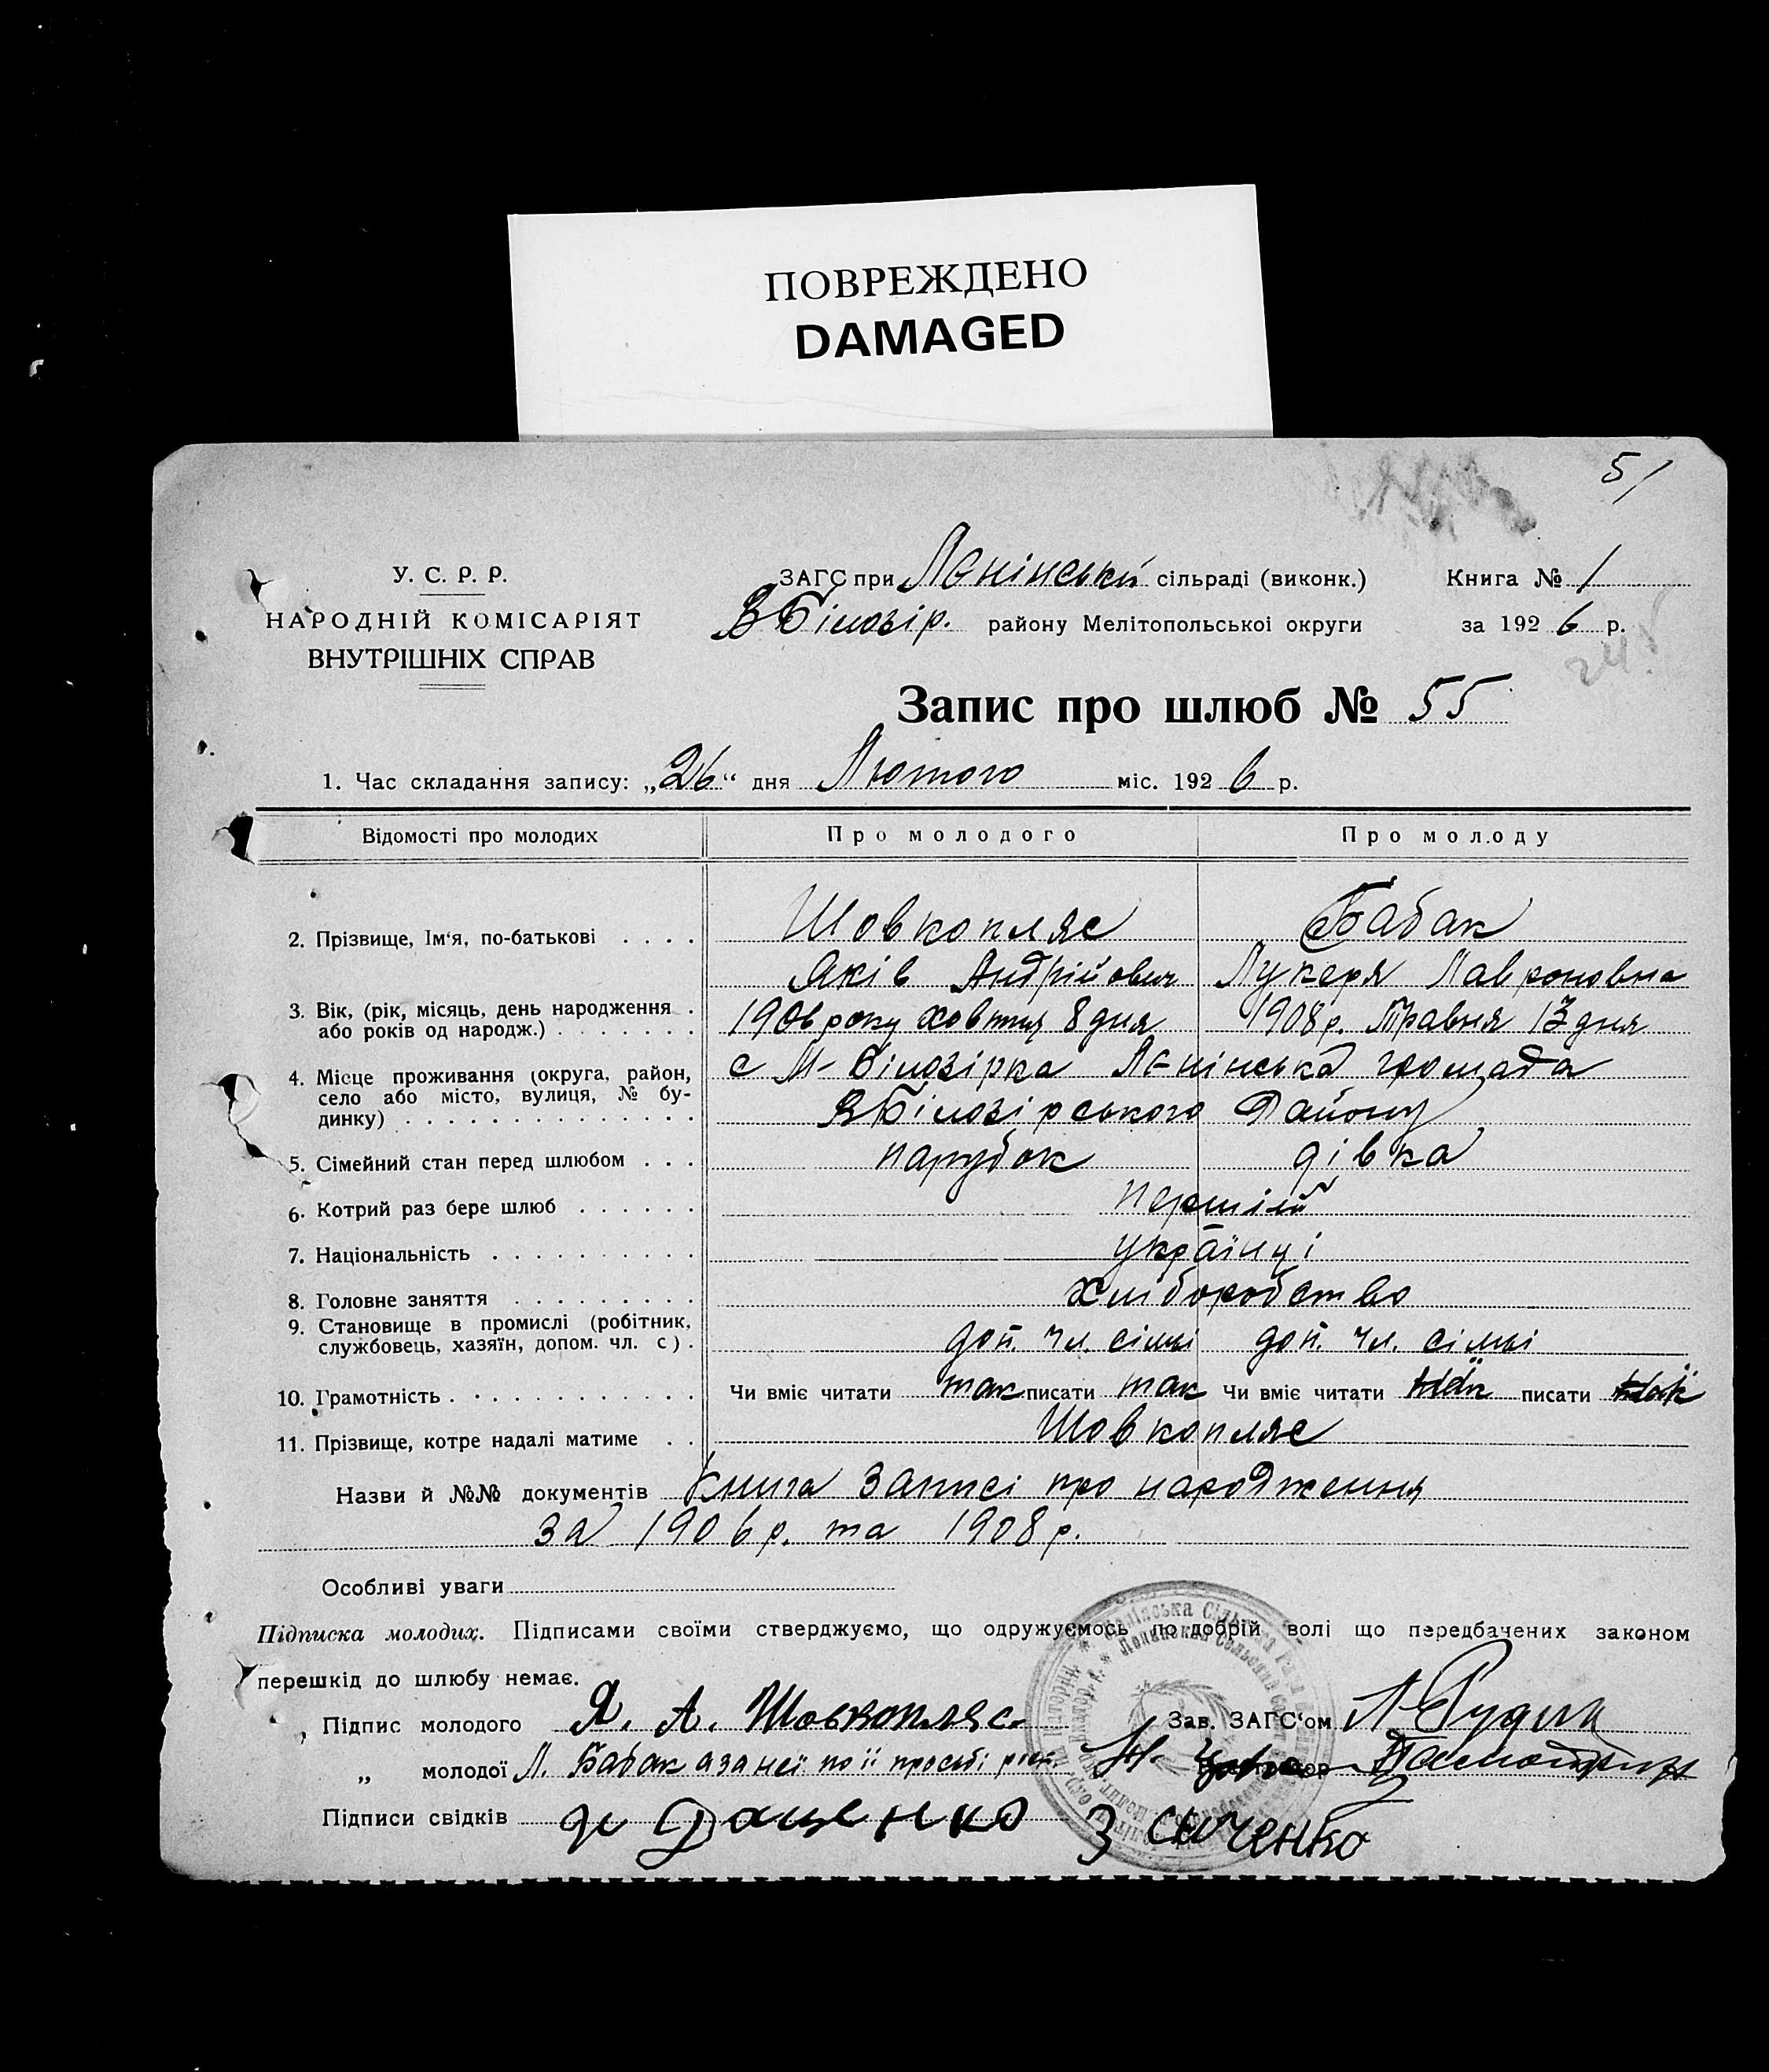 ПОВРЕЖДЕНО
DAMAGED
51
У. С. Р. Р.
НАРОДНІЙ КОМІСАРІЯТ
ВНУТРІШНІХ СПРАВ
ЗАГС при Лєнінській сільраді (виконк.) Книга № 1
ВБілозір. району Мелітопольської округи за 1926 р.
Запис про шлюб № 55
1. Час складання запису: „26“ дня Лютого міс. 1926 р.
Відомості про молодих Про молодого Про молоду
2. Прізвище, Ім‘я, по-батькові Шовкопляс Бабак
Яків Андрійович Лукеря Лавроновна
3. Вік, (рік, місяць, день народження або років од народж.) 1906 року жовтня 8 дня 1908 р. Травня 13 дня
4. Місце проживання (округа, район, село або місто, вулиця, № будинку) с М-Білозірка Лєнінська громада
ВБілозірського Району
5. Сімейний стан перед шлюбом парубок дівка
6. Котрий раз бере шлюб перший
7. Національність українці
8. Головне заняття хліборобство
9. Становище в промислі (робітник, службовець, хазяїн, допом. чл. с) доп. чл. сімьі доп. чл. сімьі
10. Грамотність Чи вміє читати так писати так Чи вміє читати писати
11. Прізвище, котре надалі матиме Шовкопляс
Назви й №№ документів Книга записі про народження
за 1906 р. та 1908 р.
Особливі уваги
Підписка молодих. Підписами своїми стверджуємо, що одружуємось по добрій волі що передбачених законом
перешкід до шлюбу немає.
Підпис молодого Я. А. Шовкопляс Зав. ЗАГС‘ом
„ молодої Л. Бабак а за неї по її просьбі
Підписи свідків Даценко